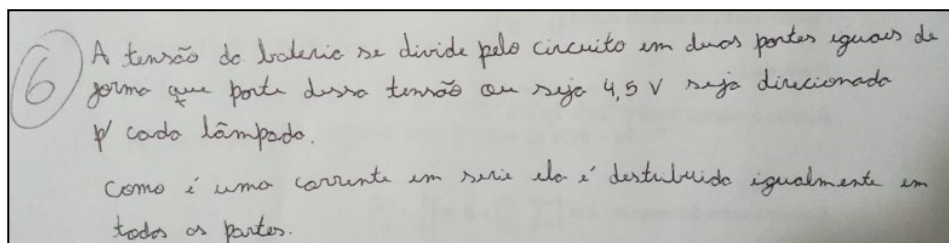 6 A tensão da bateria se divide pelo circuito em duas partes iguais de
forma que parte dessa tensão ou seja 4,5 V seja direcionada
p/ cada lâmpada.
Como é uma corrente em serie ela é destribuida igualmente em
todas as partes.